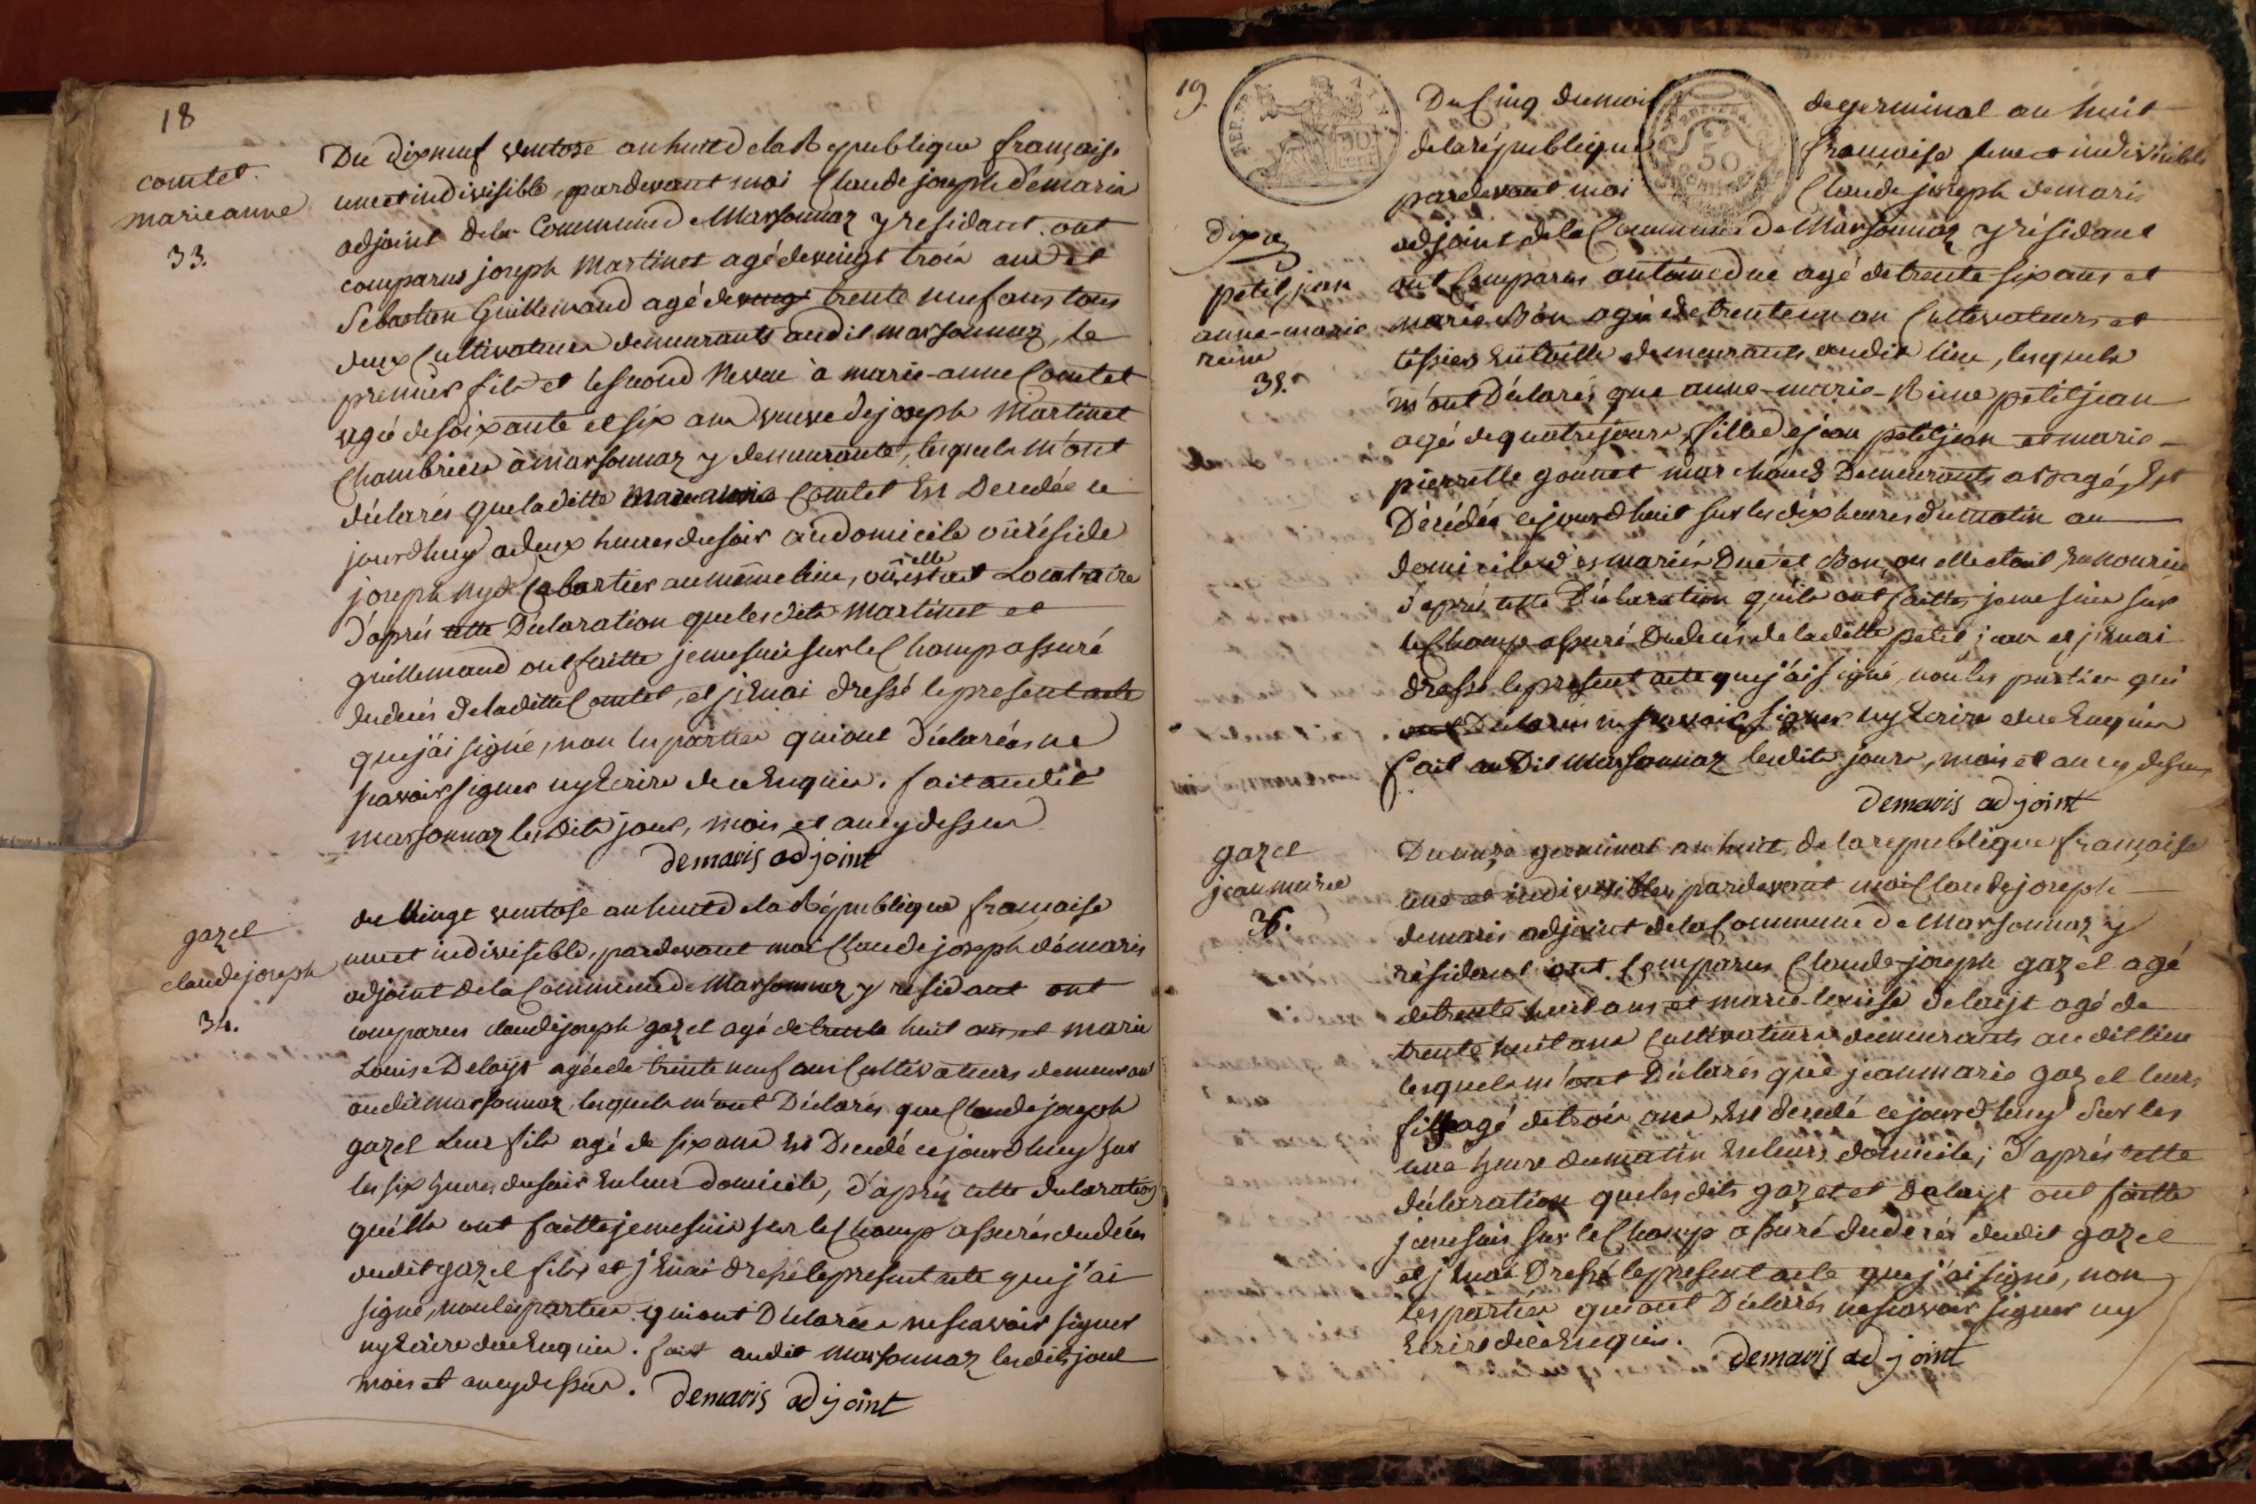 18
comtet.
marie anne
33.
Du dixneuf ventose an huit de la Republique française
une et indivisible, pardevant moi Claude joseph demaris
adjoint de la Commune de Marsonnaz y residant. ont
comparus joseph Martinet agé de vingt trois ans et
Sebastien Guillemaud agé de vingt trente neuf ans tous
deux Cultivateurs demeurants audit marsonnaz, le
premier fils et le second Neveu à marie-anne Comtet
agée de soixante et six ans veuve de joseph Martinet
Chambriere à marsonnaz y demeurante, lesquels m'ont
déclarés que laditte marie anne Comtet Est Decedée ce
jourdhuy a deux heures du soir au domicile où réside
joseph nyd Cabartier au même lieu, où elle estoit Locataire
d'aprés cette Déclaration que lesdits Martinet et
guillemaud ont faitte je me suis sur le Champ assuré
du decés de laditte Comtet, et j'Enai dressé le present acte
que j'ai signé, non les parties qui ont déclarées ne
savoir signer ny Ecrire de ce Enquis. fait audit
marsonnaz lesdits jour, mois et an cy dessus
demaris adjoint
gazel
claude joseph
34.
du Vingt ventose an huit de la République française
une et indivisible, pardevant moi Claude joseph démaris
adjoint de la Commune de Marsonnaz y residant ont
comparus claude joseph gazel agé de trente huit ans et marie
Louise Delaÿe agée de trente neuf ans Cultivateurs demeurant
audit marsonnaz, lesquels m'ont Déclarés que Claude joseph
gazel Leur fils agé de six ans Est Decedé ce jourdhuy sur
les six heures du soir En leur domicile, d'aprés cette declaration
qu'ils ont faitte je me suis sur le Champ assurés du decés
dudit gazel fils et j'Enai dressé le present acte que j'ai
signé, non les parties qui ont Déclarées ne scavoir signer
ny Ecrire de ce Enquis. fait audit marsonnaz lesdits jour
mois et an cy dessus. demaris adjoint
19
REP. FRA.
50
cent
50
Du Cinq du mois de germinal an huit
de la république française une et indivisible
pardevant moi Claude joseph demaris
adjoint de la Commune de Marsonnaz y résidant
petit jean
anne-marie
reine
35.
ont Comparus antoine due agé de trente six ans et
marie Bon agé de trente un an Cultivateurs et
tessier En toille demeurants audit lieu, lesquels
m'ont Déclarés que anne-marie-Reine petitjean
agée de quatre jours, fille de jean petitjean et marie
pierrette gonnet marchands Demeurants a Bagé, Est
Décédée cejourdhuit sur les dix heures du matin au
domicile des mariés Due et Bon, ou elle etoit En nourice
d'aprés cette Déclaration qu'ils ont faitte, je me suis sur
le Champ assuré Du decés de laditte petit jean et j'Enai
dressé le present acte que j'ai signé, non les parties qui
ont Déclarées ne scavoir signer ny Ecrire de ce Enquis
fait audit Marsonnaz lesdits jours, mois et an cy dessus
demaris adjoint
gazel
jean marie
36.
Du onze germinal an huit de la republique française
une et indivisible, pardevant moi Claude joseph
demaris adjoint de la Commune de Marsonnaz y
résidant ont Comparus Claude-joseph gazel agé
de trente huit ans et marie-louise delaÿe agé de
trente huit ans Cultivateurs demeurants audit lieu
lesquels m'ont Déclarés que jean marie gazel leurs
fils agé de trois ans Est decedé ce jourdhuy sur les
une heure du matin En leurs domicile; d'aprés cette
déclaration que lesdits gazel et Delaye ont faitte
je me suis sur le Champ assuré du decés dudit gazel
et j'Enai Dressé le present acte que j'ai signé, non
les parties qui ont Déclarés ne scavoir signer ny
Ecrire de ce Enquis.
demaris adjoint